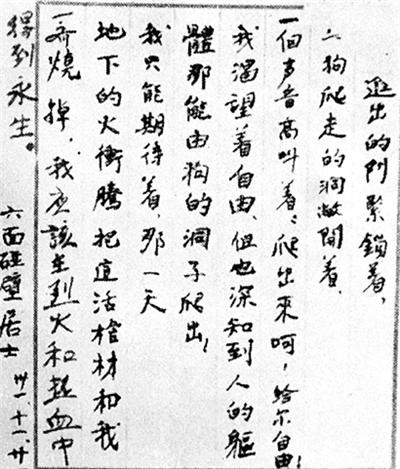 進出的門緊鎖着、
狗爬走的洞敞開着、
一個声音高叫着：爬出來呵，給尔自由！
我渴望着自由、但也深知到人的軀
體那能由狗的洞子爬出！
我只能期待着，那一天
地下的火衝騰把這活棺材和我
一齊燒掉，我应該在烈火和热血中
得到永生。
六面碰壁居士 卅一.十一.廿